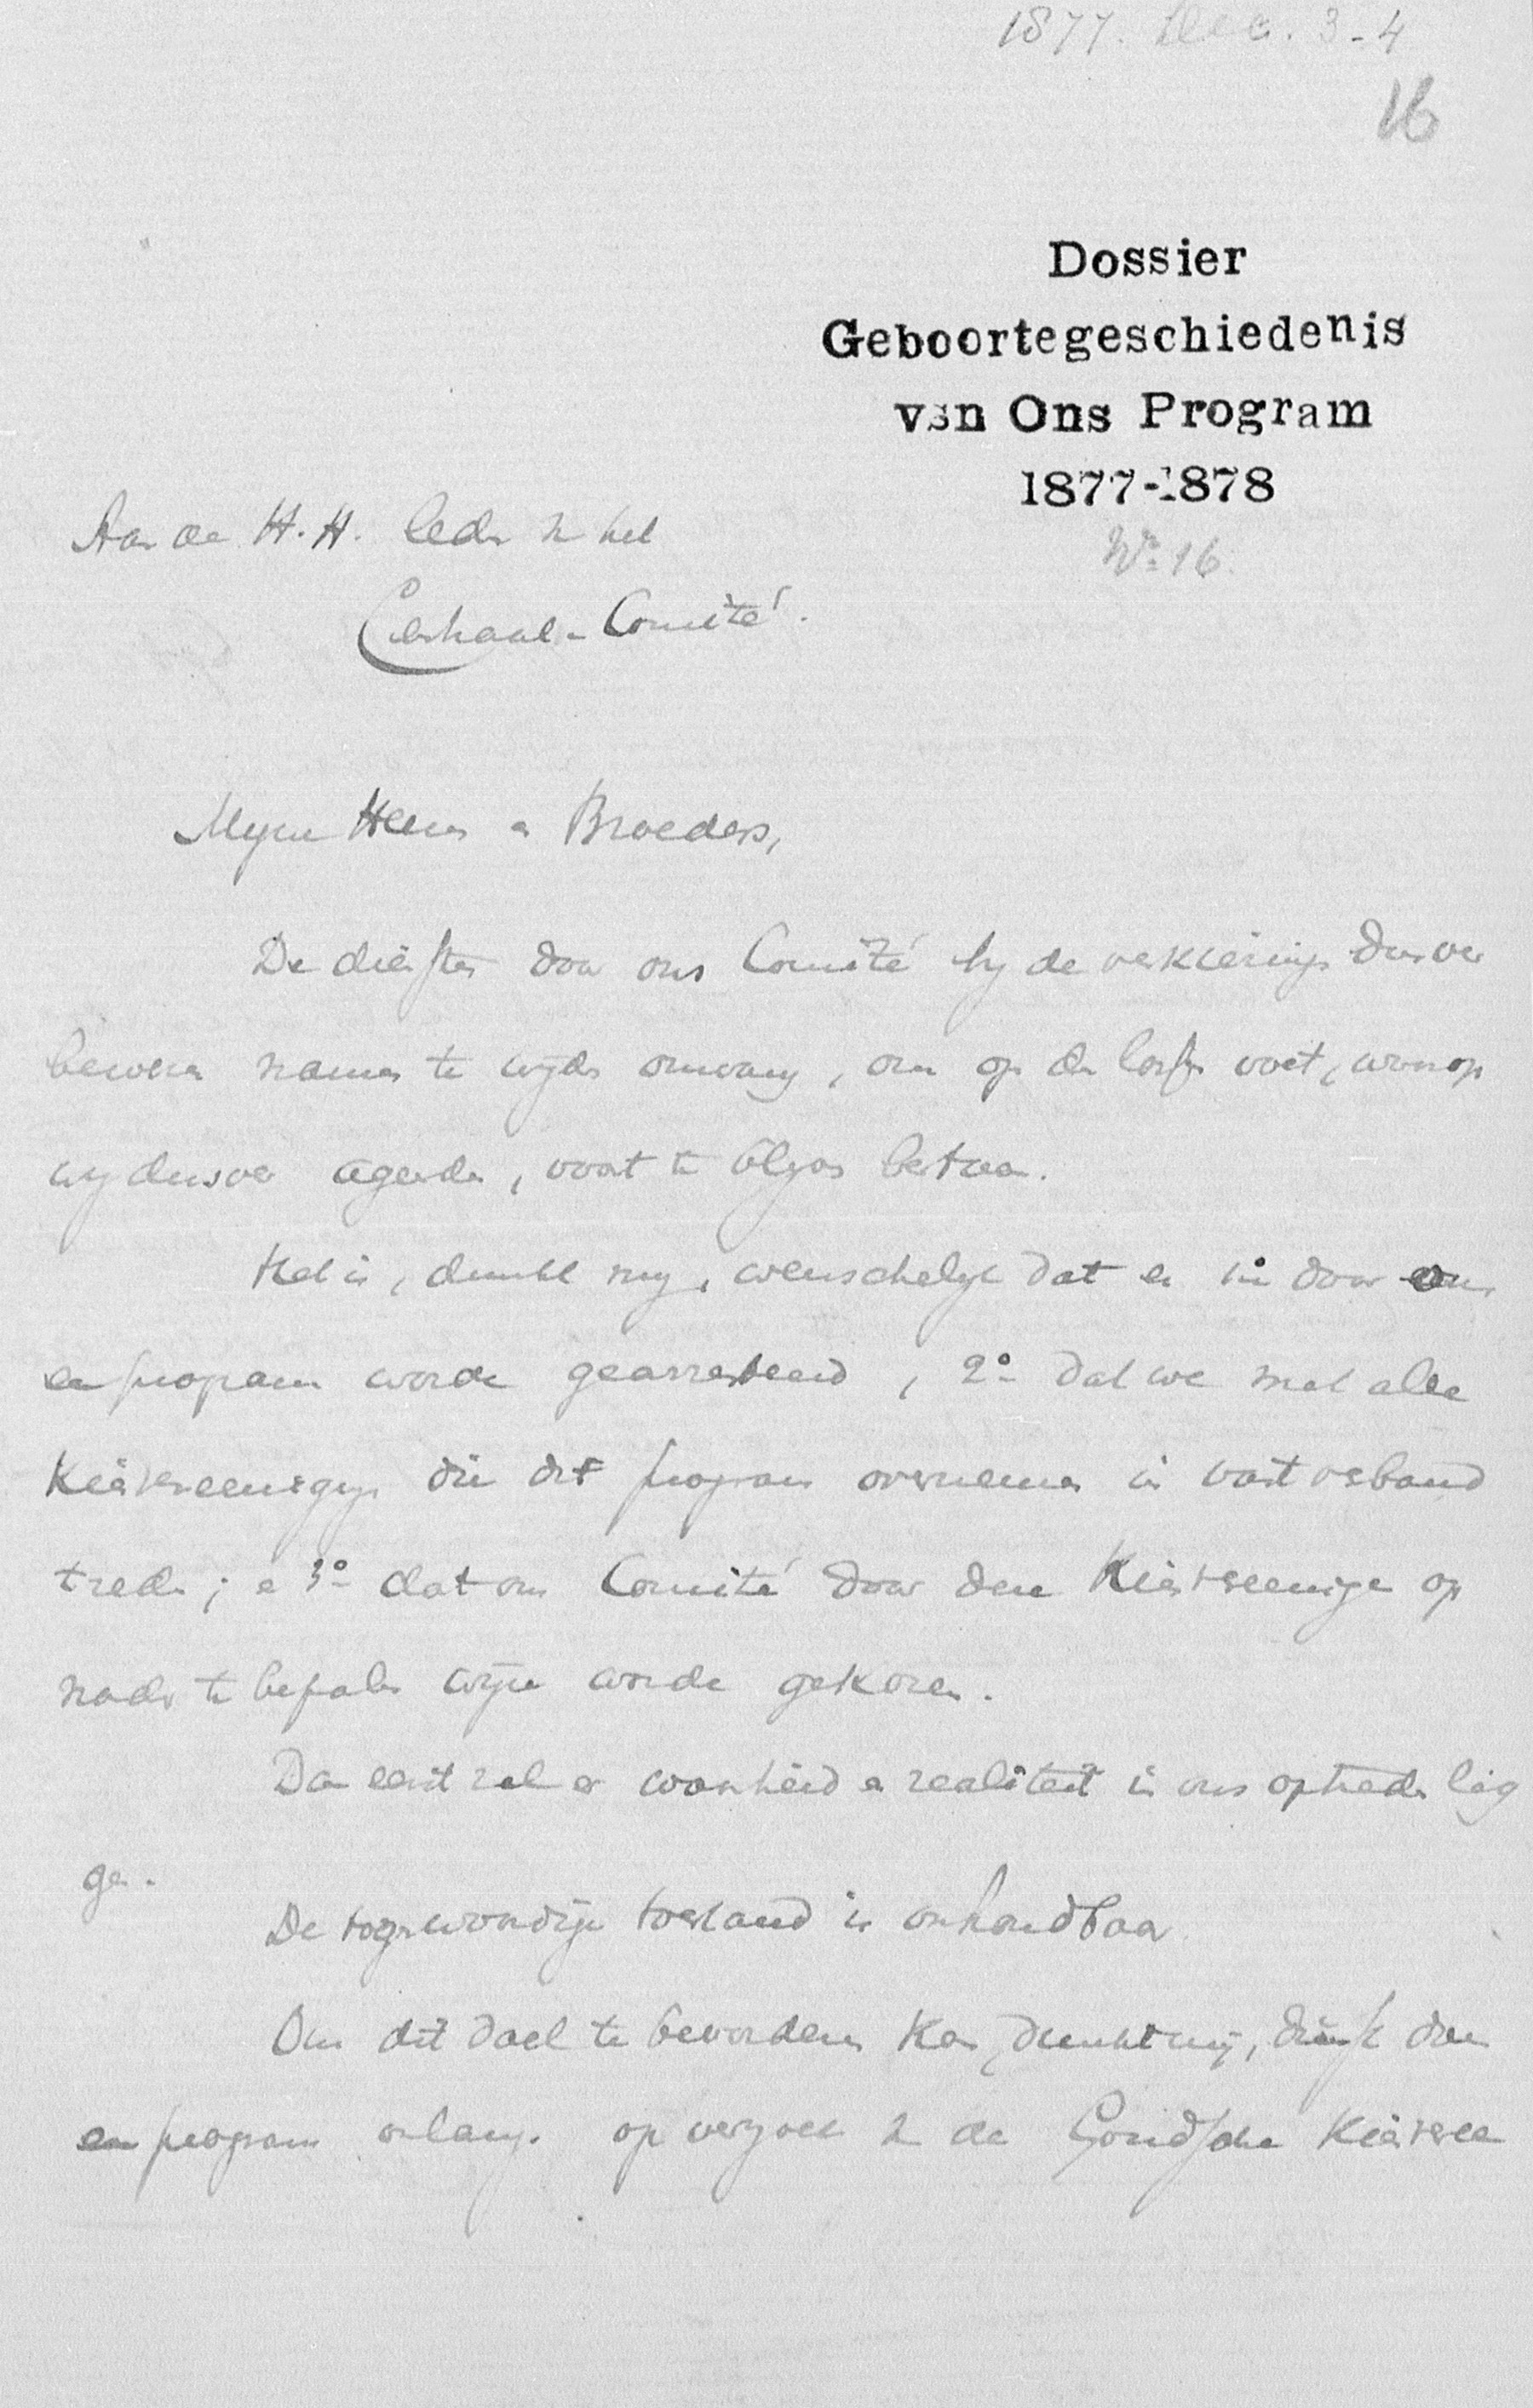 1877. Dec. 3-4
16
Dossier
Geboortegeschiedenis
van Ons Program
1877-1878
No 16.
Aan de H.H. Leden v het
Centraal-Comité.
Mijne Heeren en Broeders,
De diensten door ons Comité bij de verkiezingen dusver
bewezen namen te wijden omvang, om op den lossen voet, waarop
wij dusver ageerden, voort te blijven bestaan.
Het is, dunkt mij, wenschelijk dat er door ons
een program worde gearresteerd, 2o dat we met alle
Kiesvereenigingen die dit program overnemen in vast verband
treden; en 3o dat ons Comité door deze Kiesvereenigingen op
nader te bepalen wijze worde gekozen.
Dan eerst zal er waarheid en realiteit in ons optreden lig
gen.
De tegenwoordige toestand is onhoudbaar
Om dit doel te bevorderen kan, dunkt mij, dienst doen
een program onlangs op verzoek v de Goudsche Kiesveree